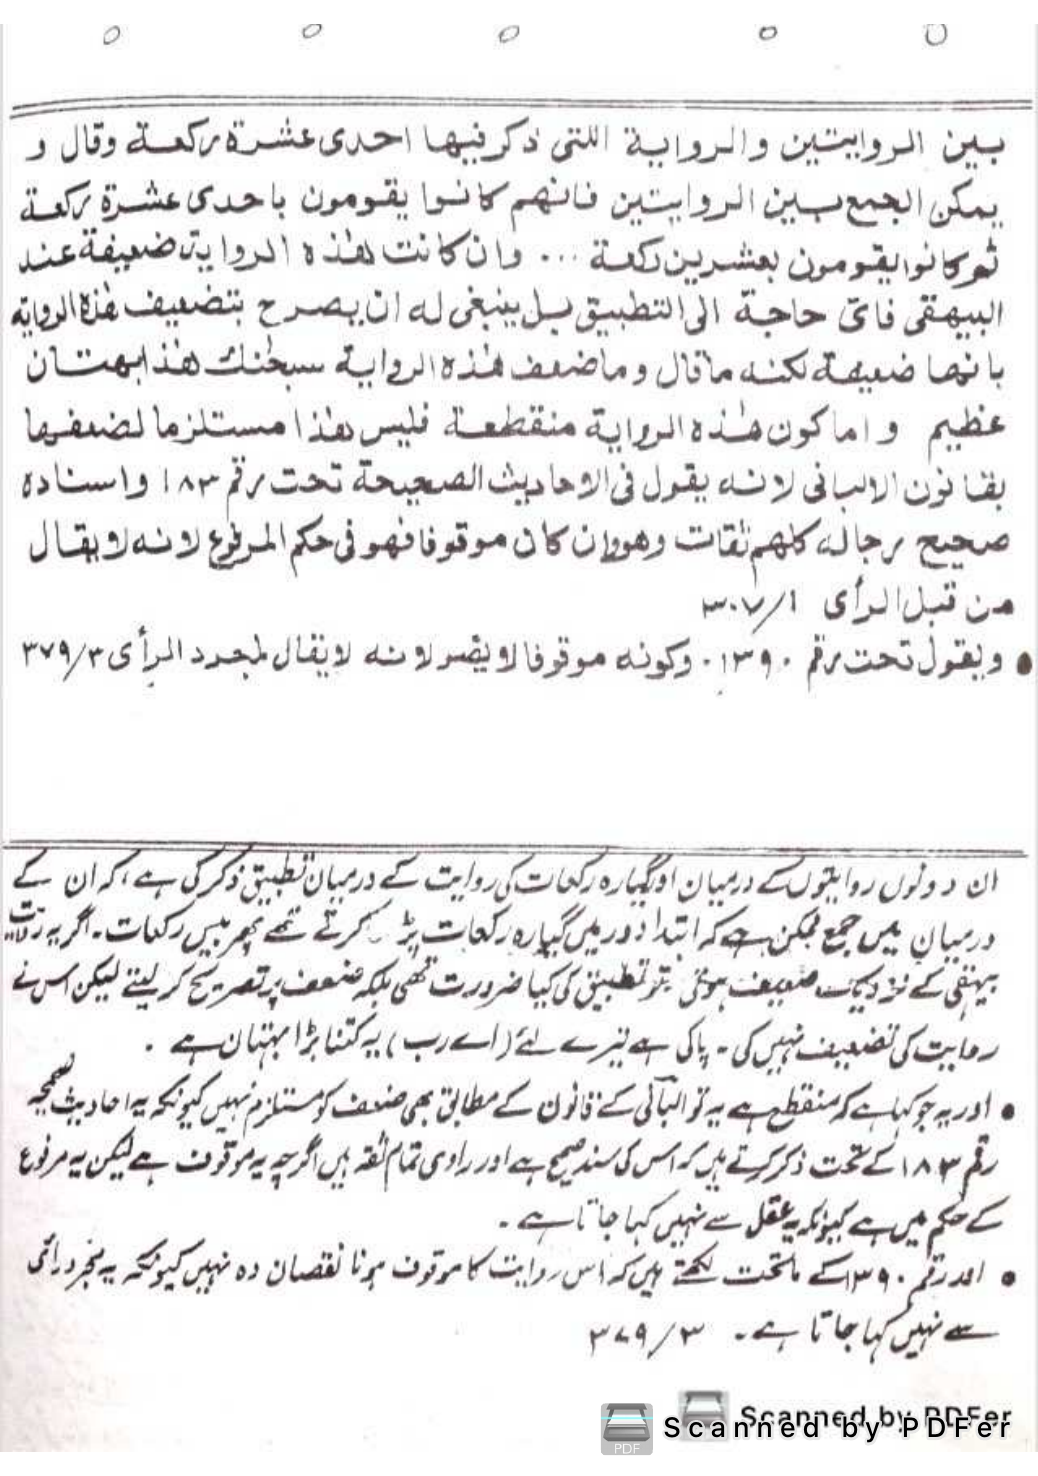 بين الروايتين والرواية اللتى ذكر فيها احدى عشرة ركعة وقال و
يمكن الجمع بين الروايتين فانهم كانوا يقومون باحدى عشرة ركعة
ثم كانوا يقومون بعشرين ركعة ... وان كانت هذه الرواية ضعيفة عند
البيهقى فاى حاجة الى التطبيق بل ينبغى له ان يصرح بتضعيف هذه الرواية
بانها ضعيفة لكنه ما قال وما ضعف هذه الرواية سبحنك هذا بهتان
عظيم واما كون هذه الرواية منقطعة فليس هذا مستلزما لضعفها
بقانون الالبانى لانه يقول فى الاحاديث الصحيحة تحت رقم ١٨٣ واسناده
صحيح رجاله كلهم ثقات وهو وان كان موقوفا فهو فى حكم المرفوع لانه لا يقال
من قبل الرأى ٣٠٧/١
● ويقول تحت رقم ١٣٩٠. وكونه موقوفا لا يضر لانه لا يقال لمجرد الرأى ٣٧٩/٣
ان دونوں روایتوں کے درمیان اور گیارہ رکعات کی روایت کے درمیان تطبیق ذکر کی ہے، کہ ان کے
درمیان میں جمع ممکن ہے کہ ابتداء دور میں گیارہ رکعات پڑ کرتے تھے پھر بیس رکعات۔ اگر یہ روایت
بیہقی کے نزدیک ضعیف ہوتی تو تطبیق کی کیا ضرورت تھی بلکہ ضعف پر تصریح کر لیتے لیکن اس نے
روایت کی تضعیف نہیں کی۔ پاکی ہے تیرے لئے (اے رب) یہ کتنا بڑا بہتان ہے ۔
● اور یہ جو کہا ہے کہ منقطع ہے یہ تو البانی کے قانون کے مطابق بھی ضعف کو مستلزم نہیں کیونکہ یہ احادیث صحیحہ
رقم ١٨٣ کے تحت ذکر کرتے ہیں کہ اس کی سند صحیح ہے اور راوی تمام ثقہ ہیں اگرچہ یہ موقوف ہے لیکن یہ مرفوع
کے حکم میں ہے کیونکہ یہ عقل سے نہیں کہا جاتا ہے ۔
● اور رقم ١٣٩٠ کے ماتحت لکھتے ہیں کہ اس روایت کا موقوف ہونا نقصان دہ نہیں کیونکہ یہ مجرد رائی
سے نہیں کہا جاتا ہے۔ ٣٧٩/٣
Scanned by PDFer
Scanned by PDFer
PDF